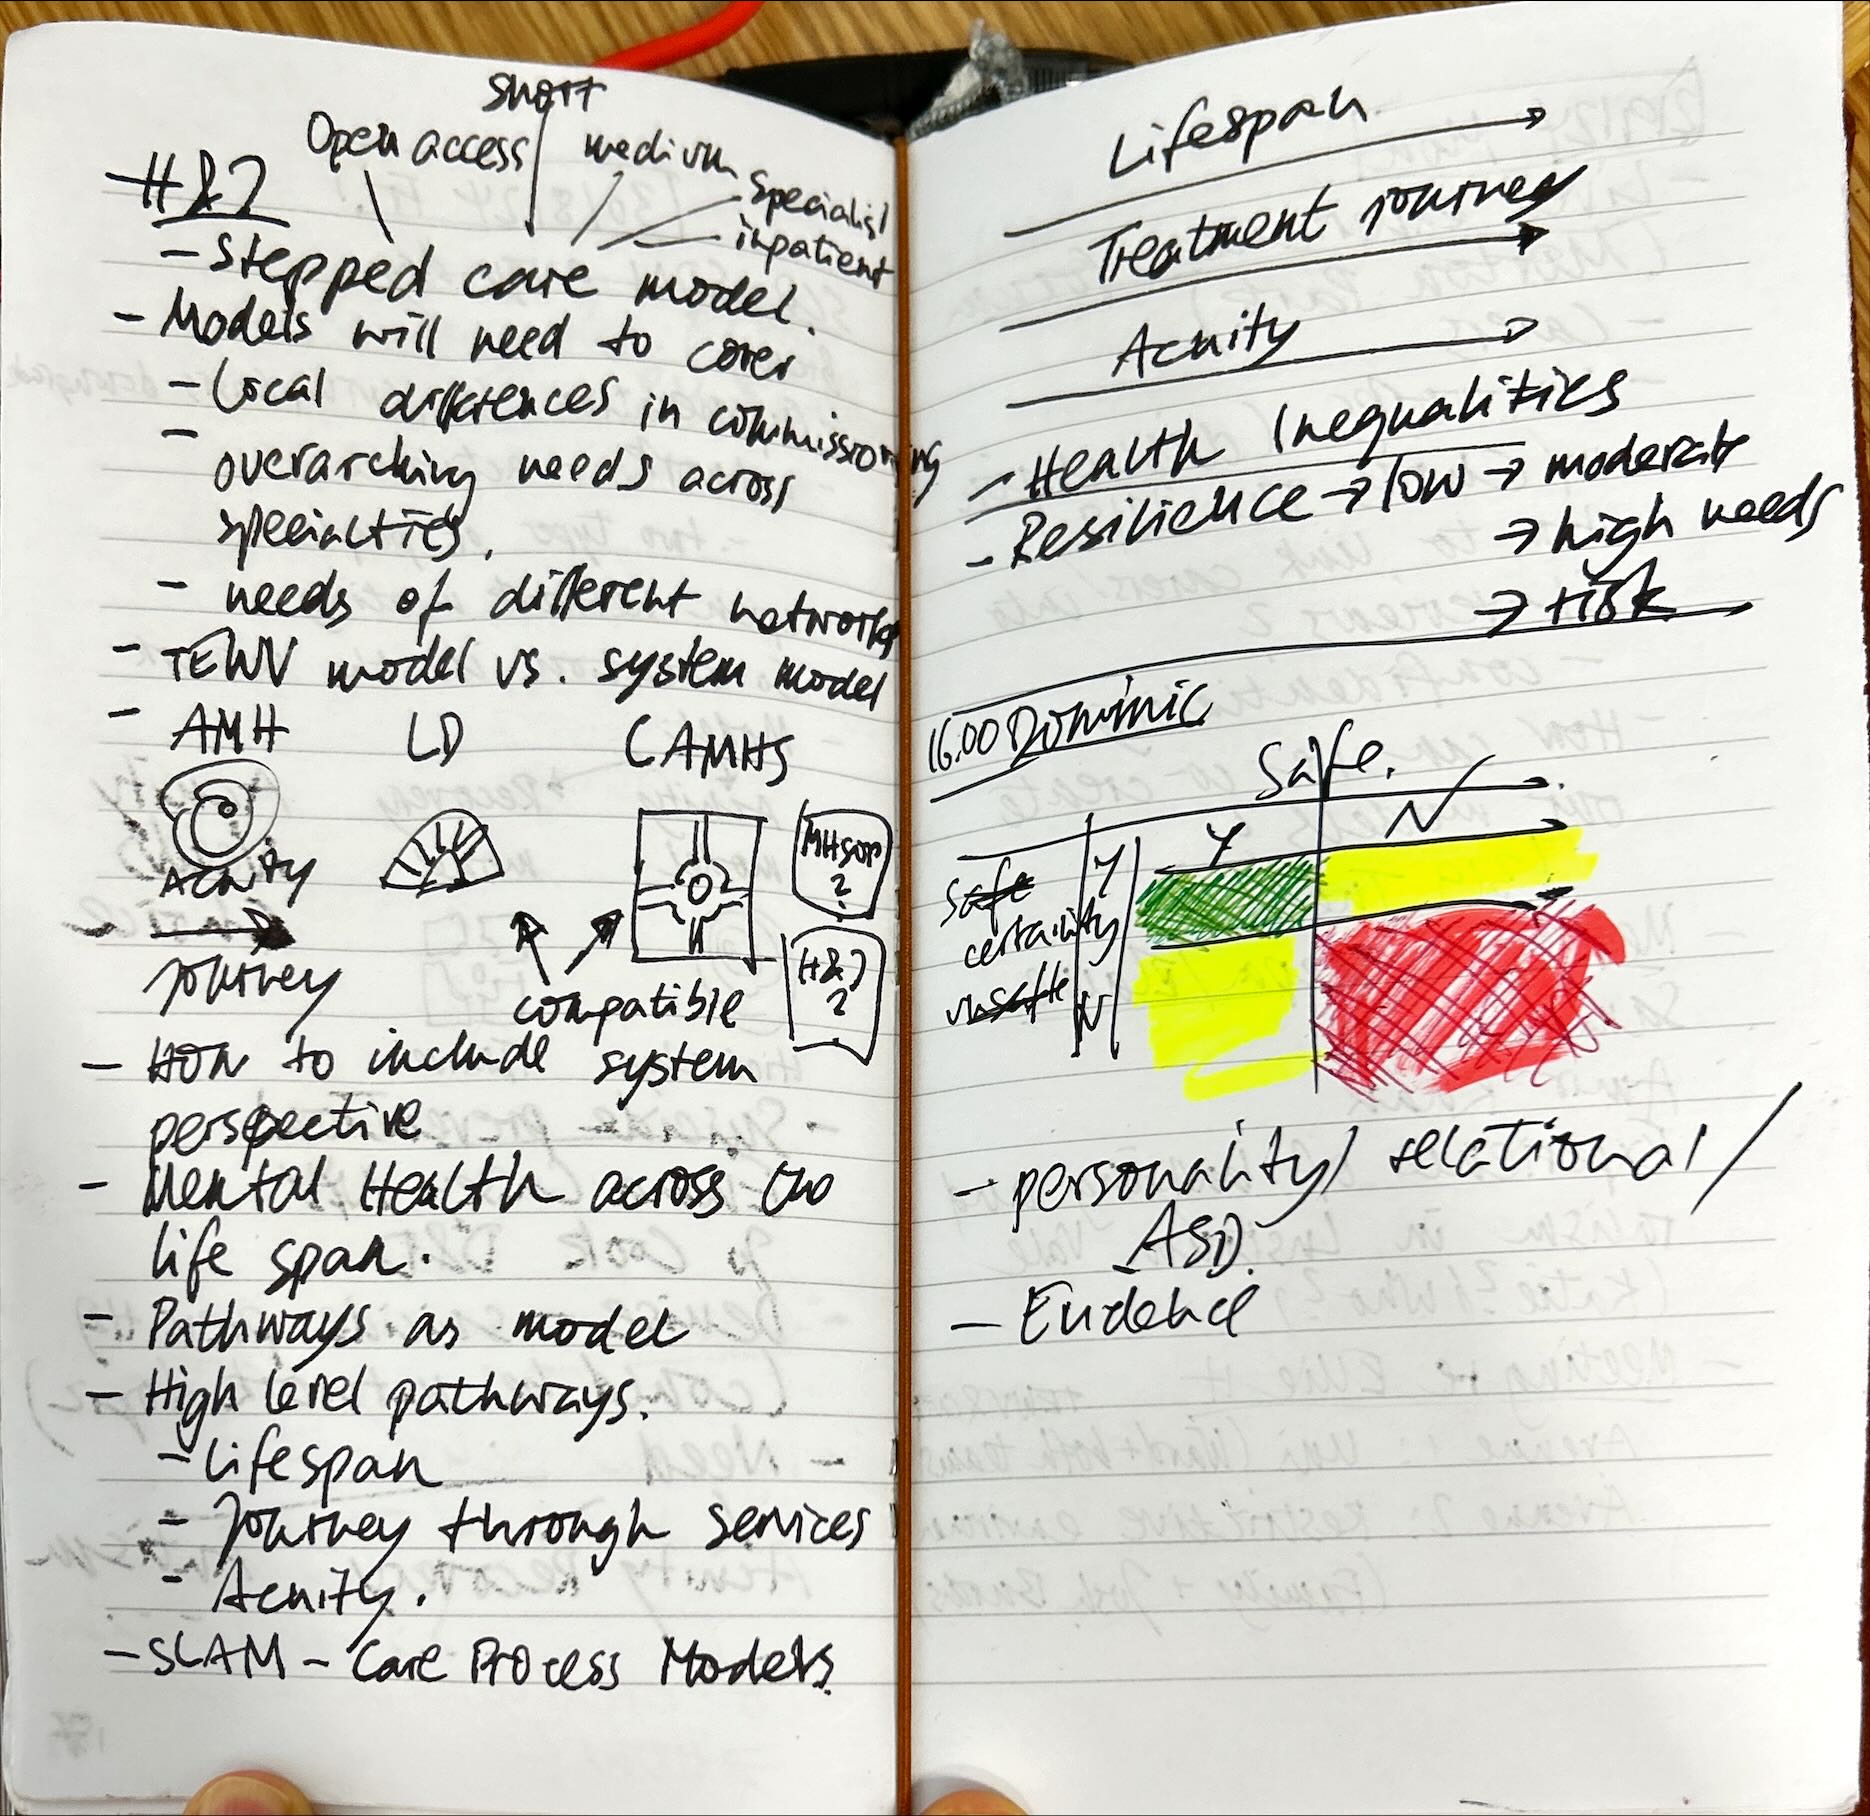 short
Open access
medium
specialist
inpatient
H&J
- Stepped care model.
- Models will need to cover
- local differences in commissioning
- overarching needs across
specialties.
- needs of different networks
- TEWV model vs. system model
- AMH LD CAMHS
Acuity
Journey
compatible
MHSOP
?
H&J
?
- How to include system
perspective
- Mental Health across the
life span.
- Pathways as model
- High level pathways.
- Lifespan
- Journey through services
- Acuity.
- SLAM - Care Process Models.
Lifespan
Treatment journey
Acuity
- Health Inequalities
- Resilience → low → moderate
→ high needs
→ risk
16.00 Dominic
Safe.
Y N
safe Y
certainty
unsafe N
- personality / relational /
ASD.
- Evidence